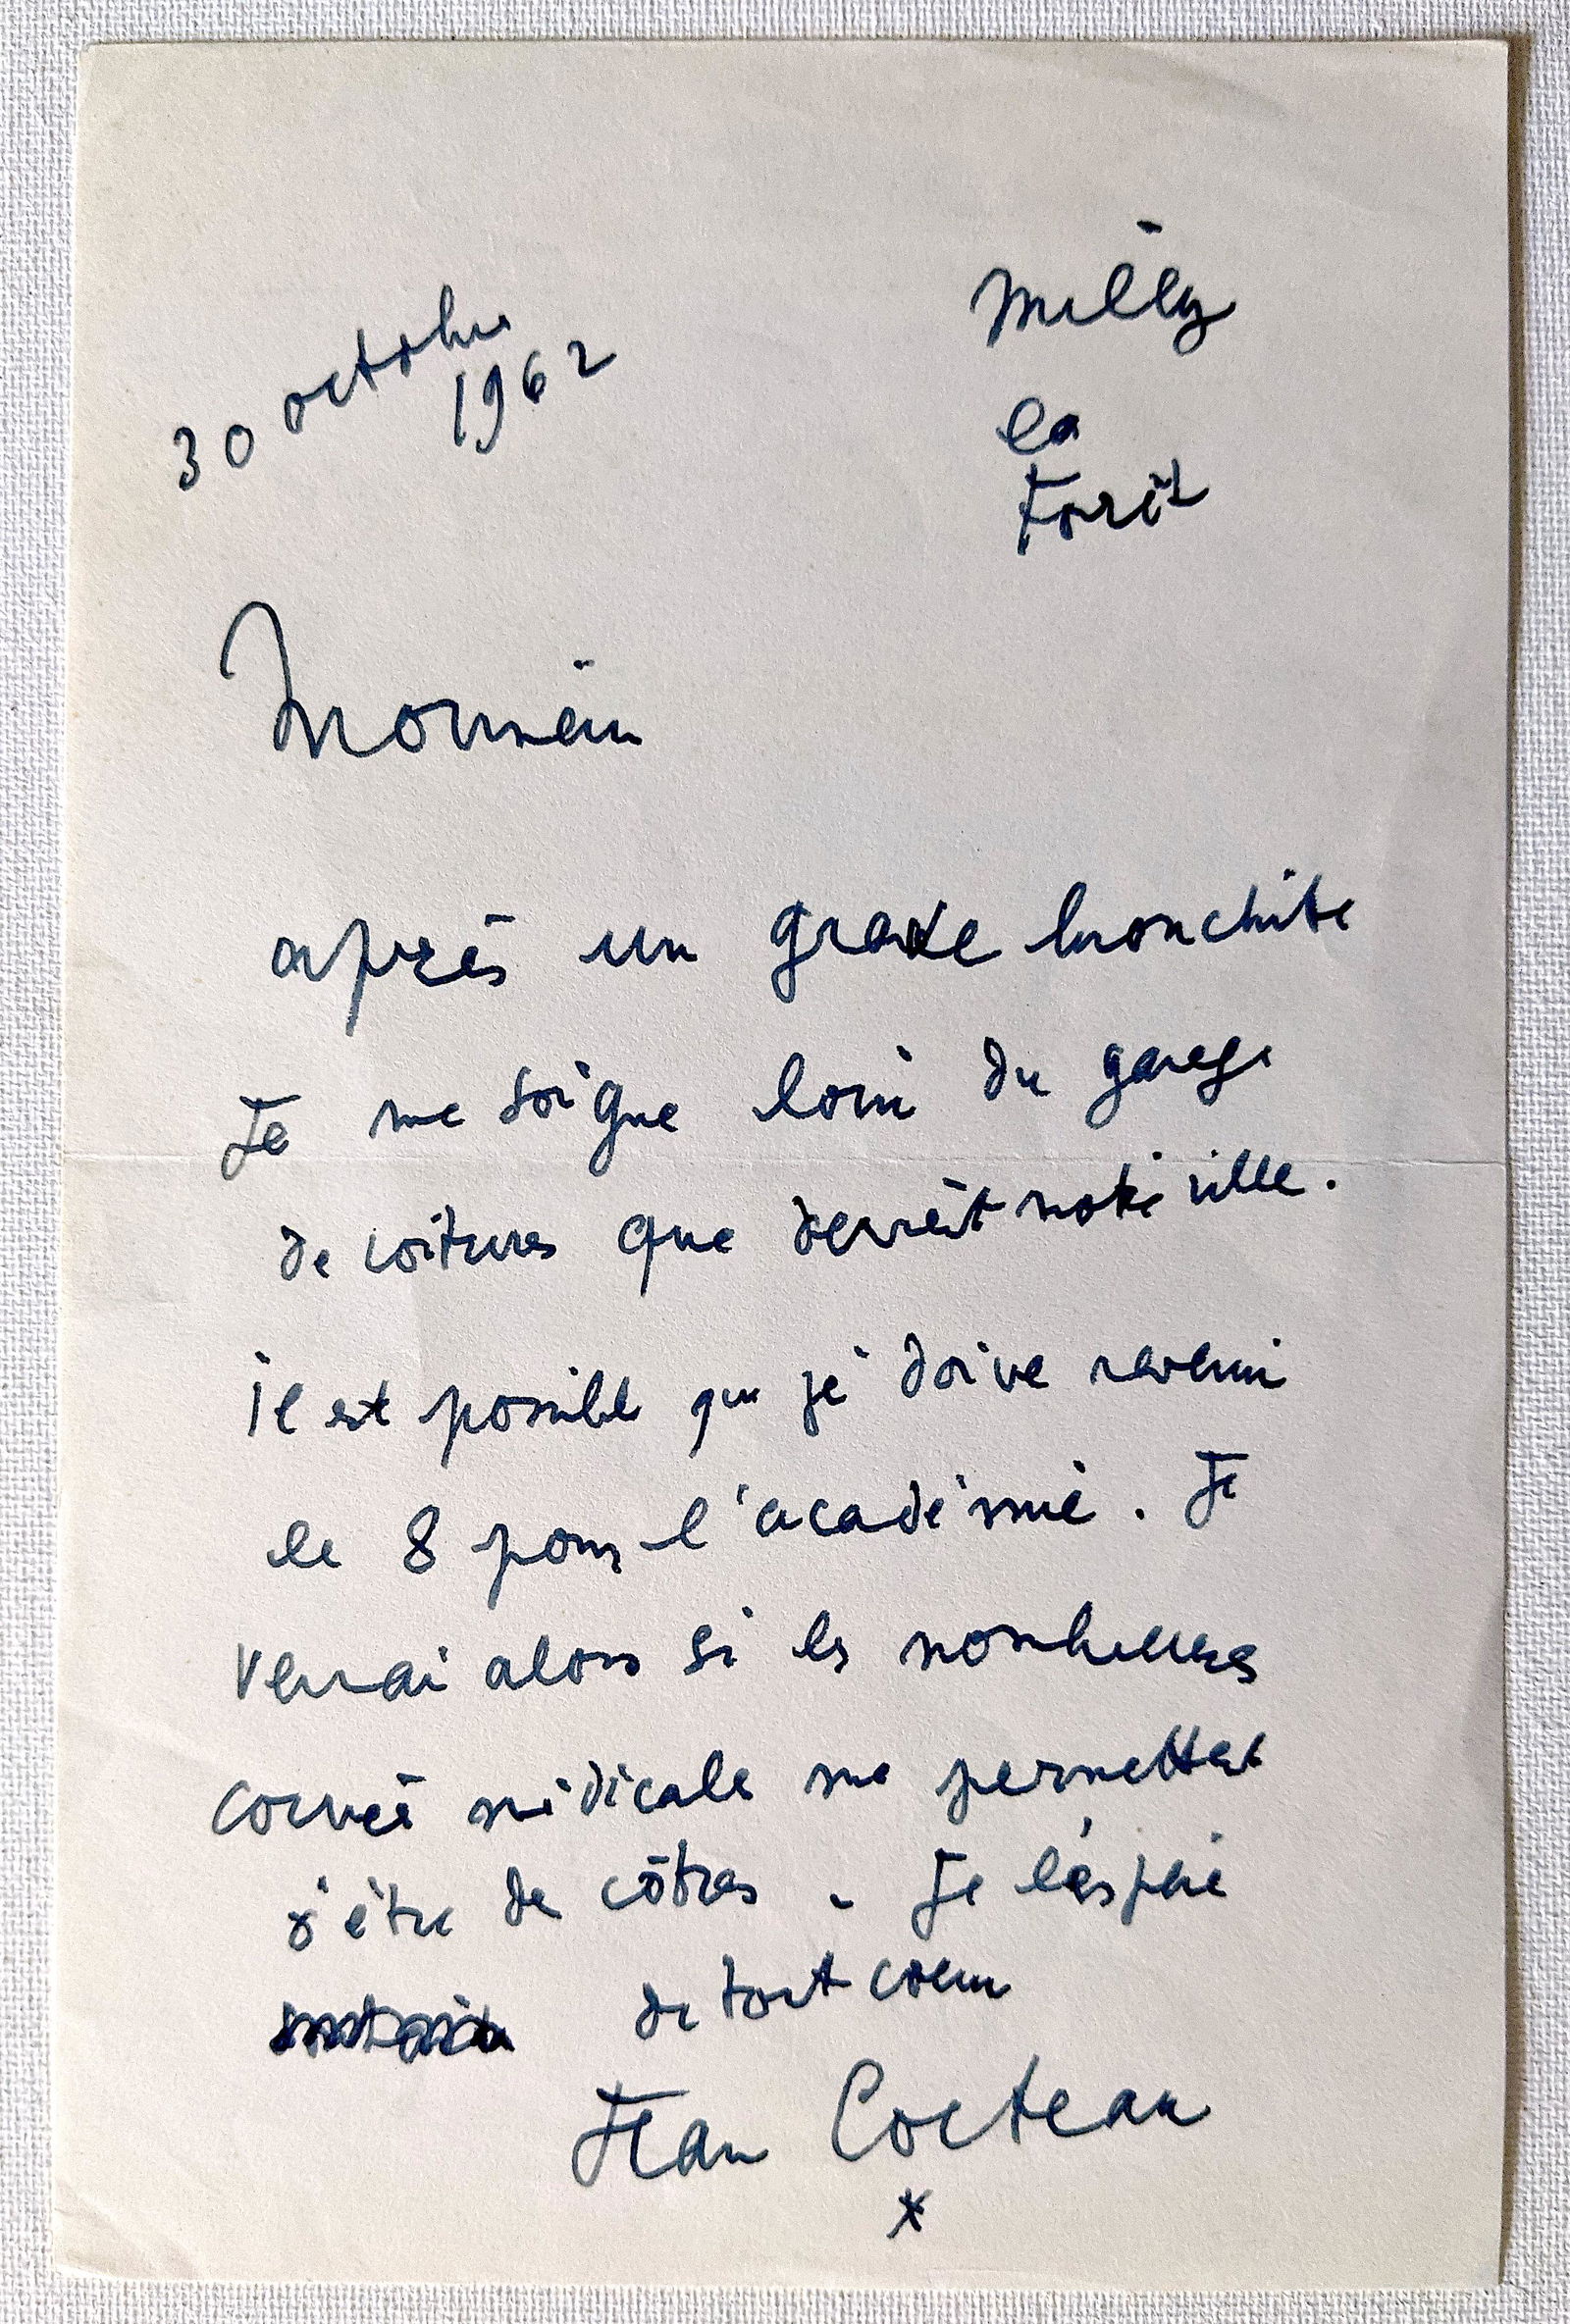 30 octobre
1962
Milly
la
Forêt
Monsieur
après un grave bronchite
Je me soigne loin du garage
de voitures que devient notre ville.
il est possible que je doive revenir
le 8 pour l'académie. Je
verrai alors si les nombreuses
corvées médicales me permettent
d'être de vôtres. Je l'éspère
de tout coeur
Jean Cocteau